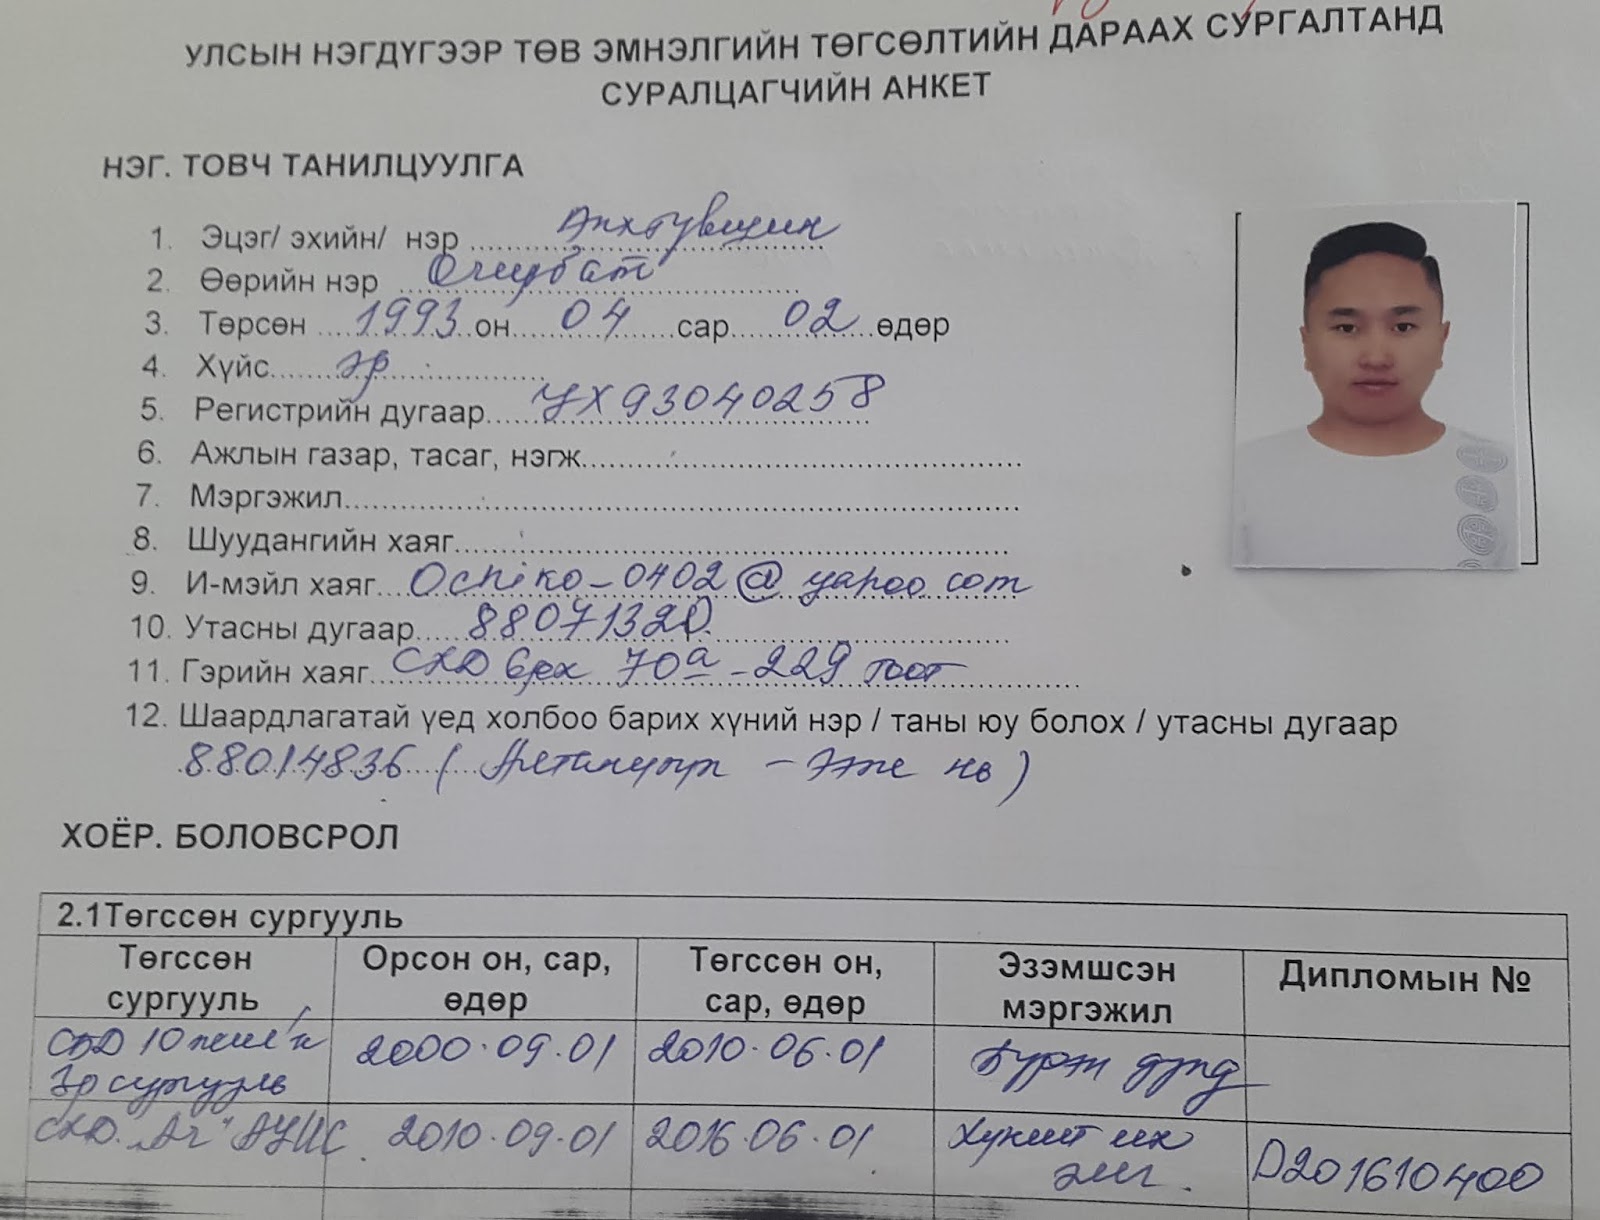 УЛСЫН НЭГДҮГЭЭР ТӨВ ЭМНЭЛГИЙН ТӨГСӨЛТИЙН ДАРААХ СУРГАЛТАНД
СУРАЛЦАГЧИЙН АНКЕТ
НЭГ. ТОВЧ ТАНИЛЦУУЛГА
1. Эцэг/ эхийн/ нэр Энхтүвшин
2. Өөрийн нэр Очирбат
3. Төрсөн 1993 он 04 сар 02 өдөр
4. Хүйс эр
5. Регистрийн дугаар УХ93040258
6. Ажлын газар, тасаг, нэгж
7. Мэргэжил
8. Шуудангийн хаяг
9. И-мэйл хаяг Ochiko_0402@yahoo.com
10. Утасны дугаар 88071320
11. Гэрийн хаяг СХД 70а-229 тоот
12. Шаардлагатай үед холбоо барих хүний нэр / таны юу болох / утасны дугаар
88014836 ( - Ээж нь )
ХОЁР. БОЛОВСРОЛ
2.1Төгссөн сургууль
Төгссөн сургууль Орсон он, сар, өдөр Төгссөн он, сар, өдөр Эзэмшсэн мэргэжил Дипломын №
СБД 10 жил'н 2000.09.01 2010.06.01 Бүрэн дунд
сургууль
СХД. "Ач" АУИС 2010.09.01 2016.06.01 Хүний их D201610400
эмч.